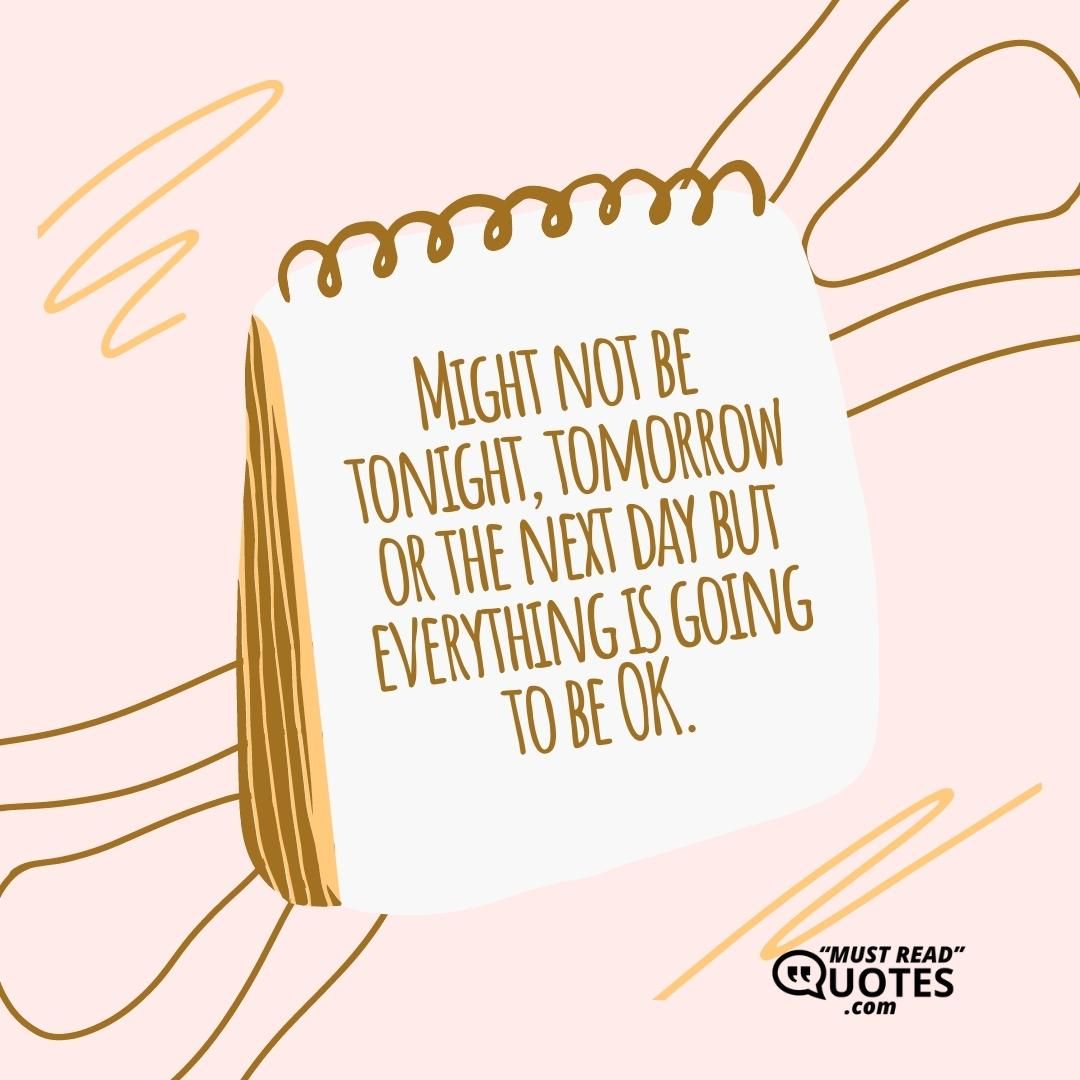 Might not be
tonight, tomorrow
or the next day but
everything is going
to be OK.
"MUST READ"
QUOTES
.com